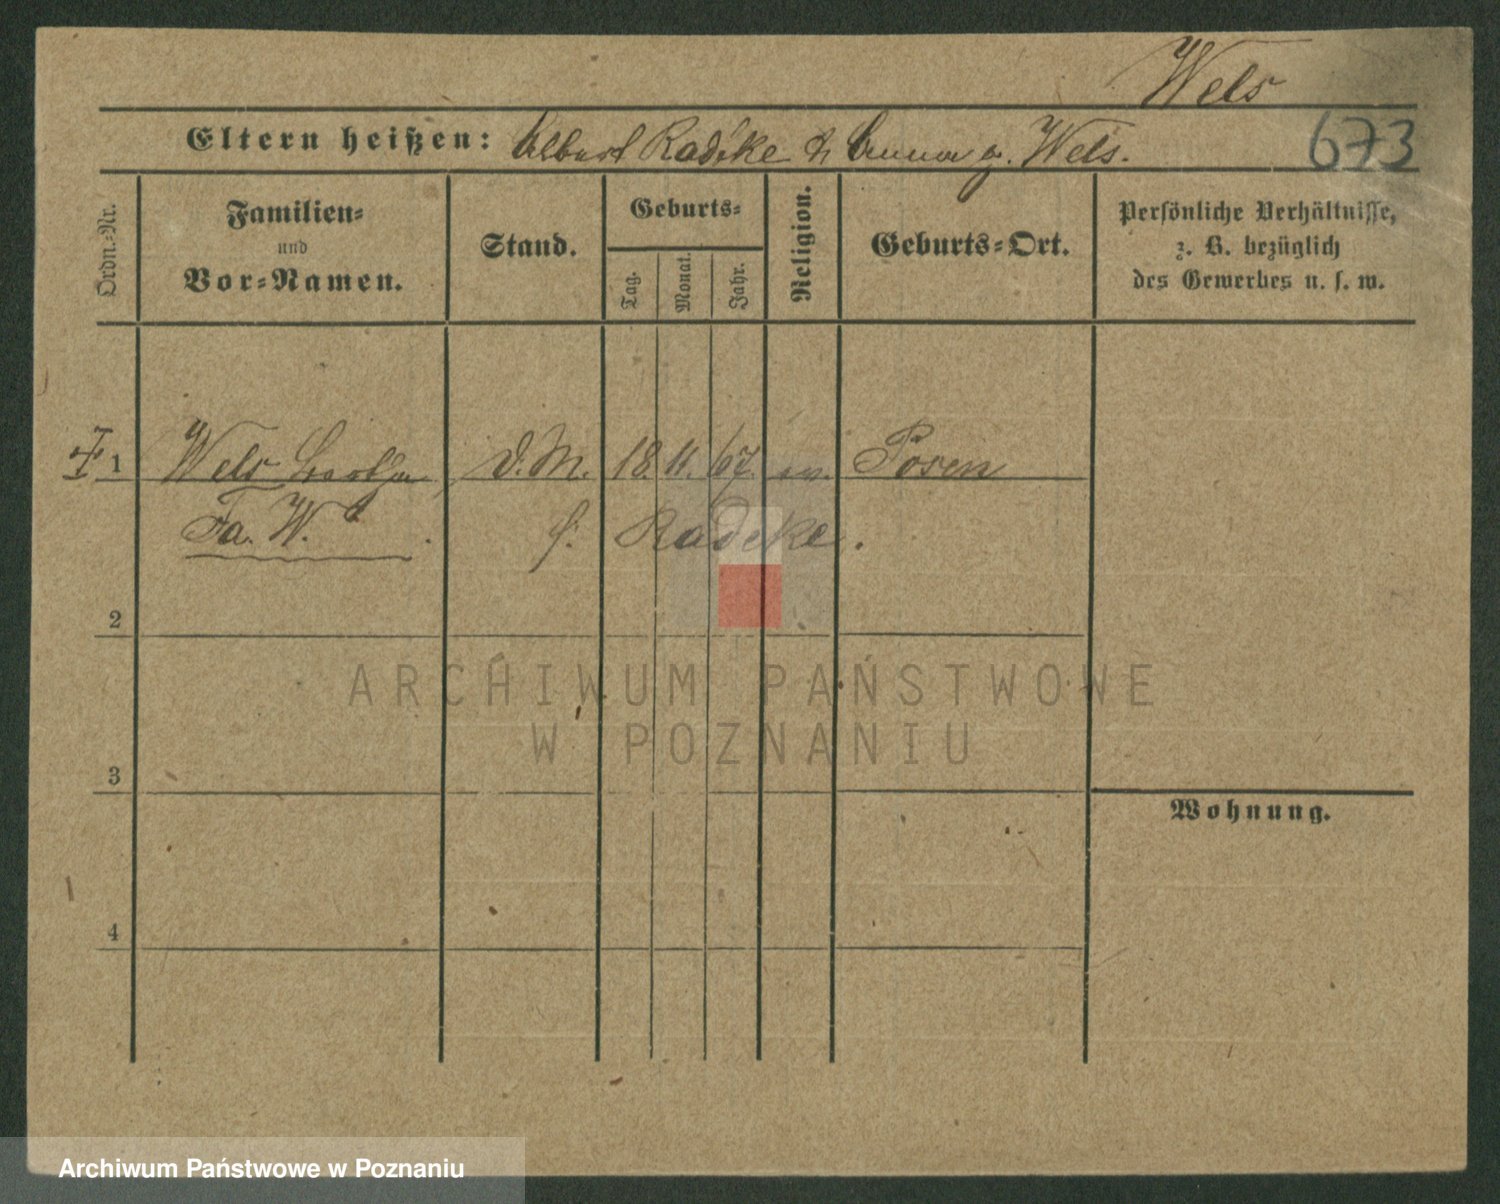 Wels
Eltern heißen: Albert Radtke & Anna g. Wels.
673
Ordn.-Nr.
Familien-
und
Vor-Namen.
Stand.
Geburts-
Tag.
Monat.
Jahr.
Religion.
Geburts-Ort.
Persönliche Verhältnisse,
z. B. bezüglich
des Gewerbes u. s. w.
1 Wels Bertha D.M. 18. 11. 67. ev. Posen
Fa. W. f. Radtke.
2
ARCHIWUM PAŃSTWOWE
W POZNANIU
3
Wohnung.
4
Archiwum Państwowe w Poznaniu